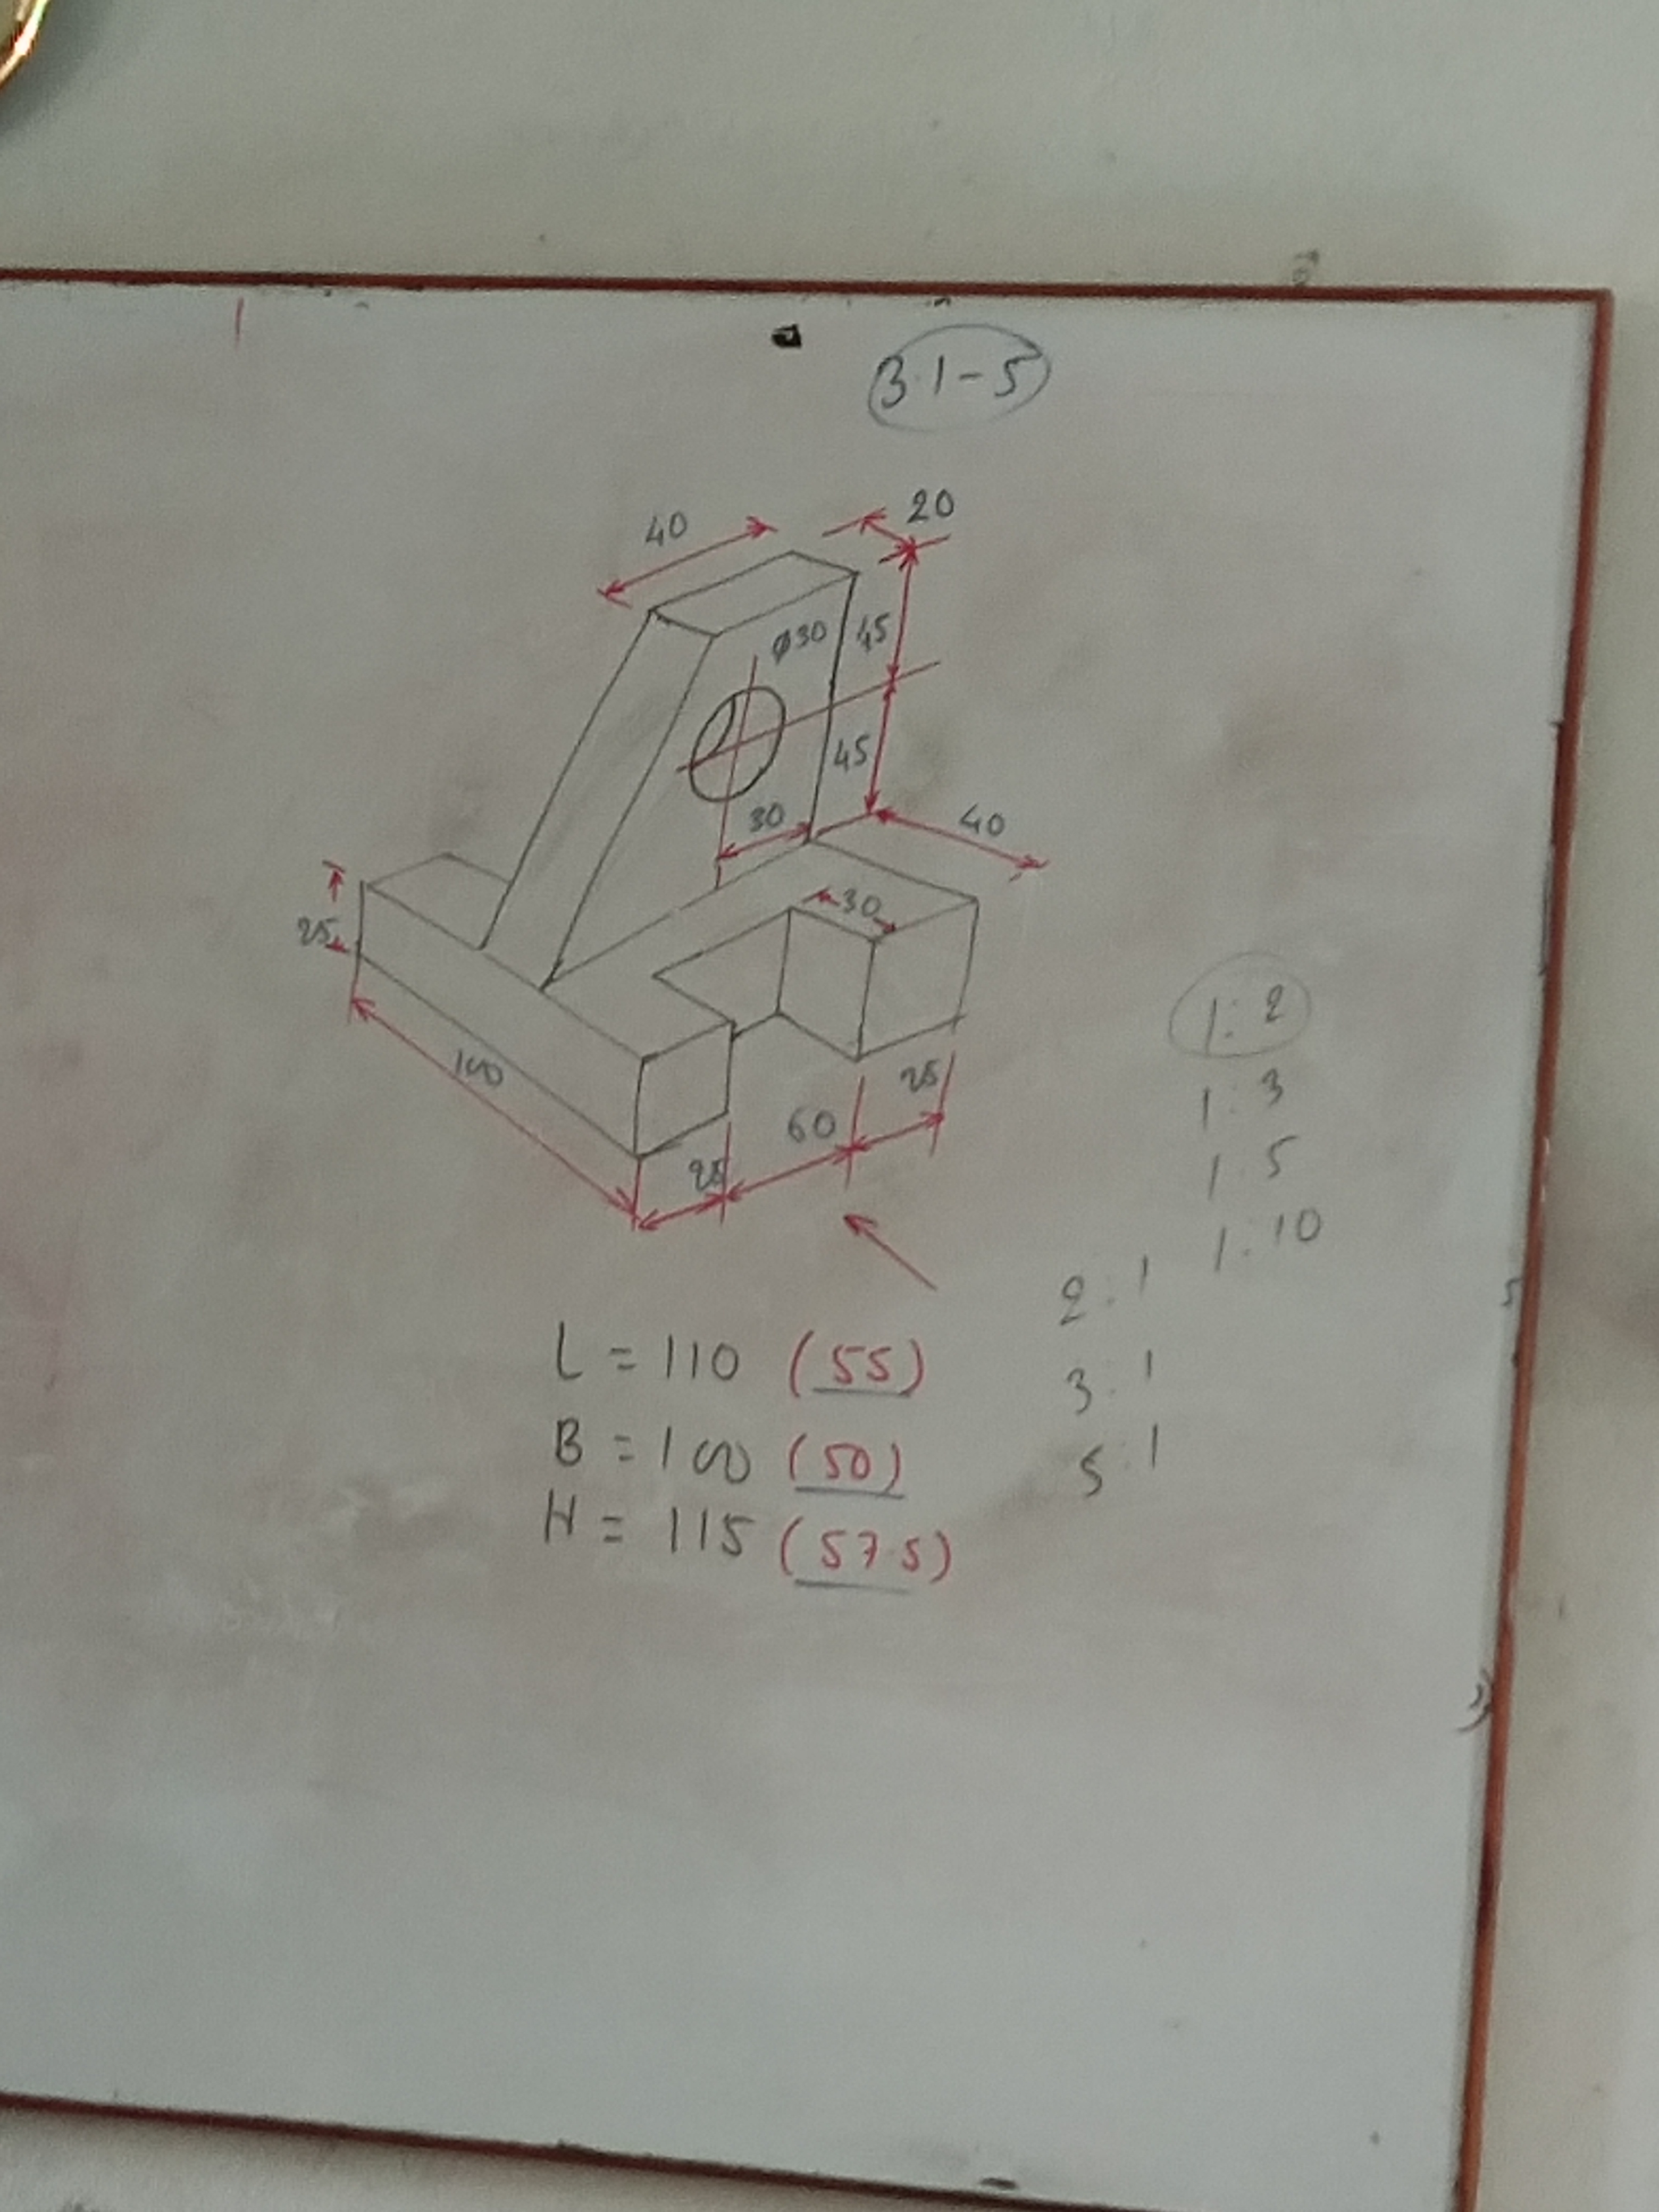 3.1-5
40
20
ø30
45
45
30
40
30
25
100
25
60
25
1:2
1:3
1:5
1:10
2:1
3:1
5:1
L = 110 (55)
B = 100 (50)
H = 115 (57.5)